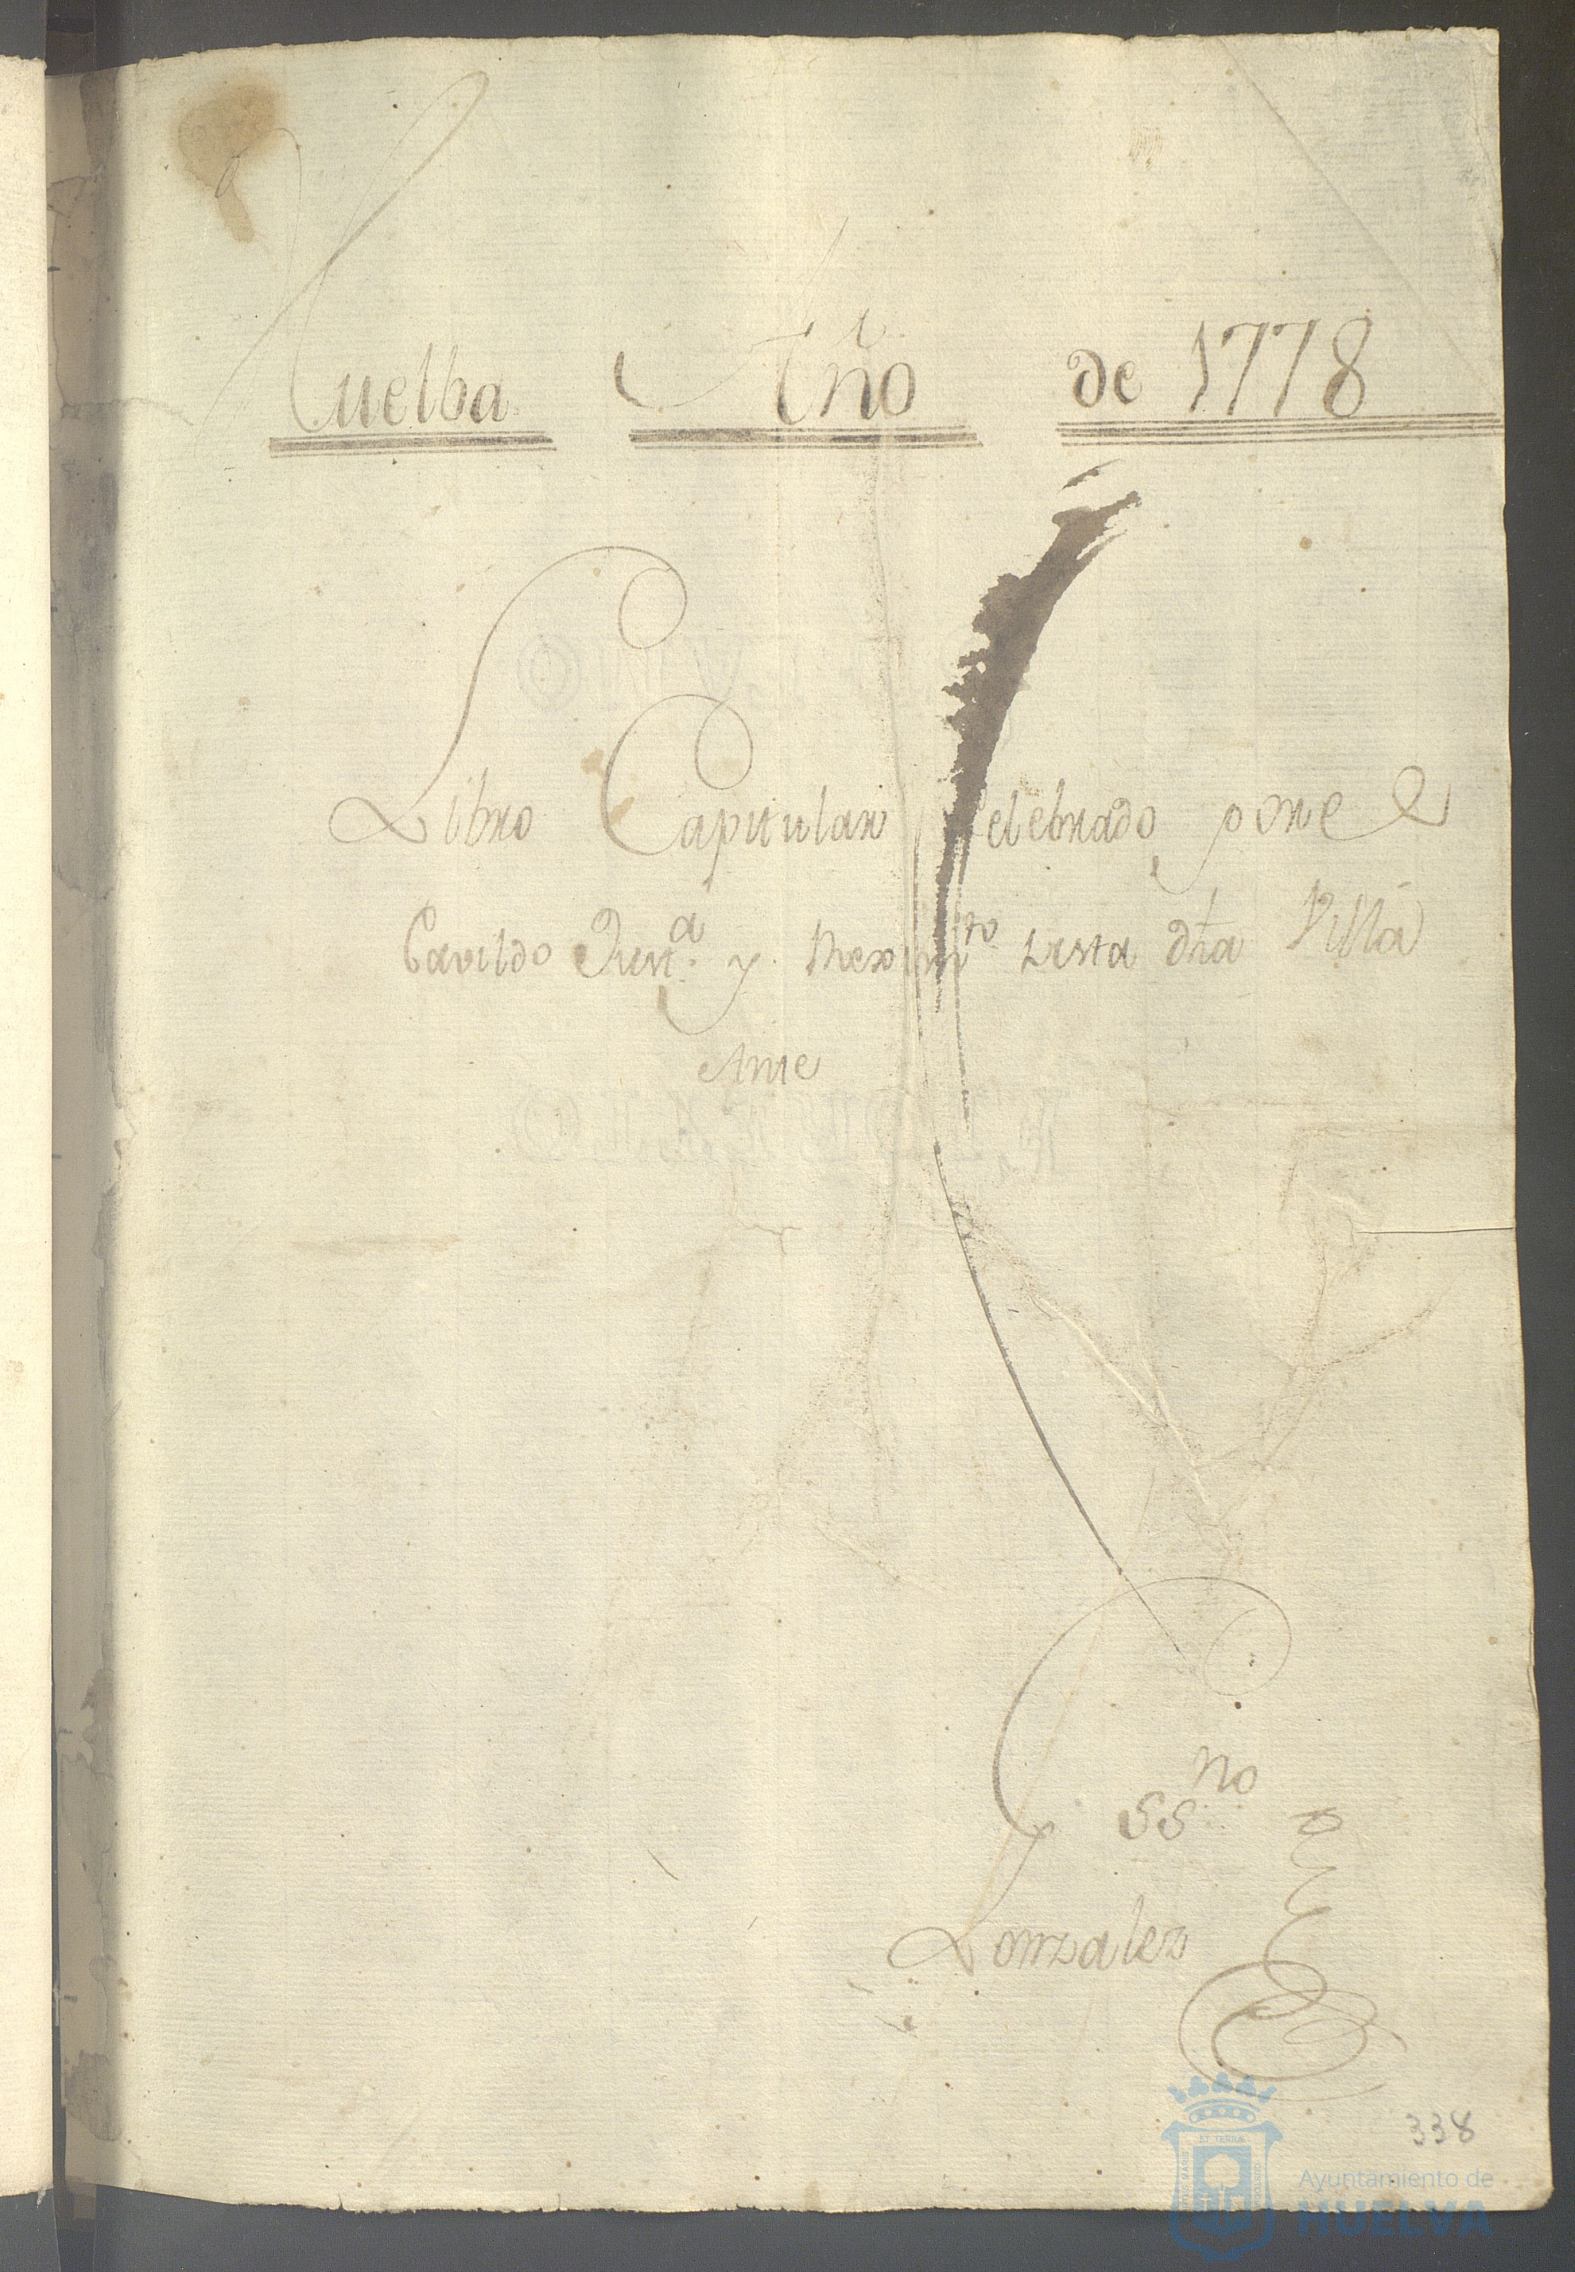 Huelba Año de 1778
Libro Capitular Celebrado por el
Cavildo Just.ª y Reximno desta dha Villa
Ante
SSno
Gonzalez
338
Ayuntamiento de
HUELVA